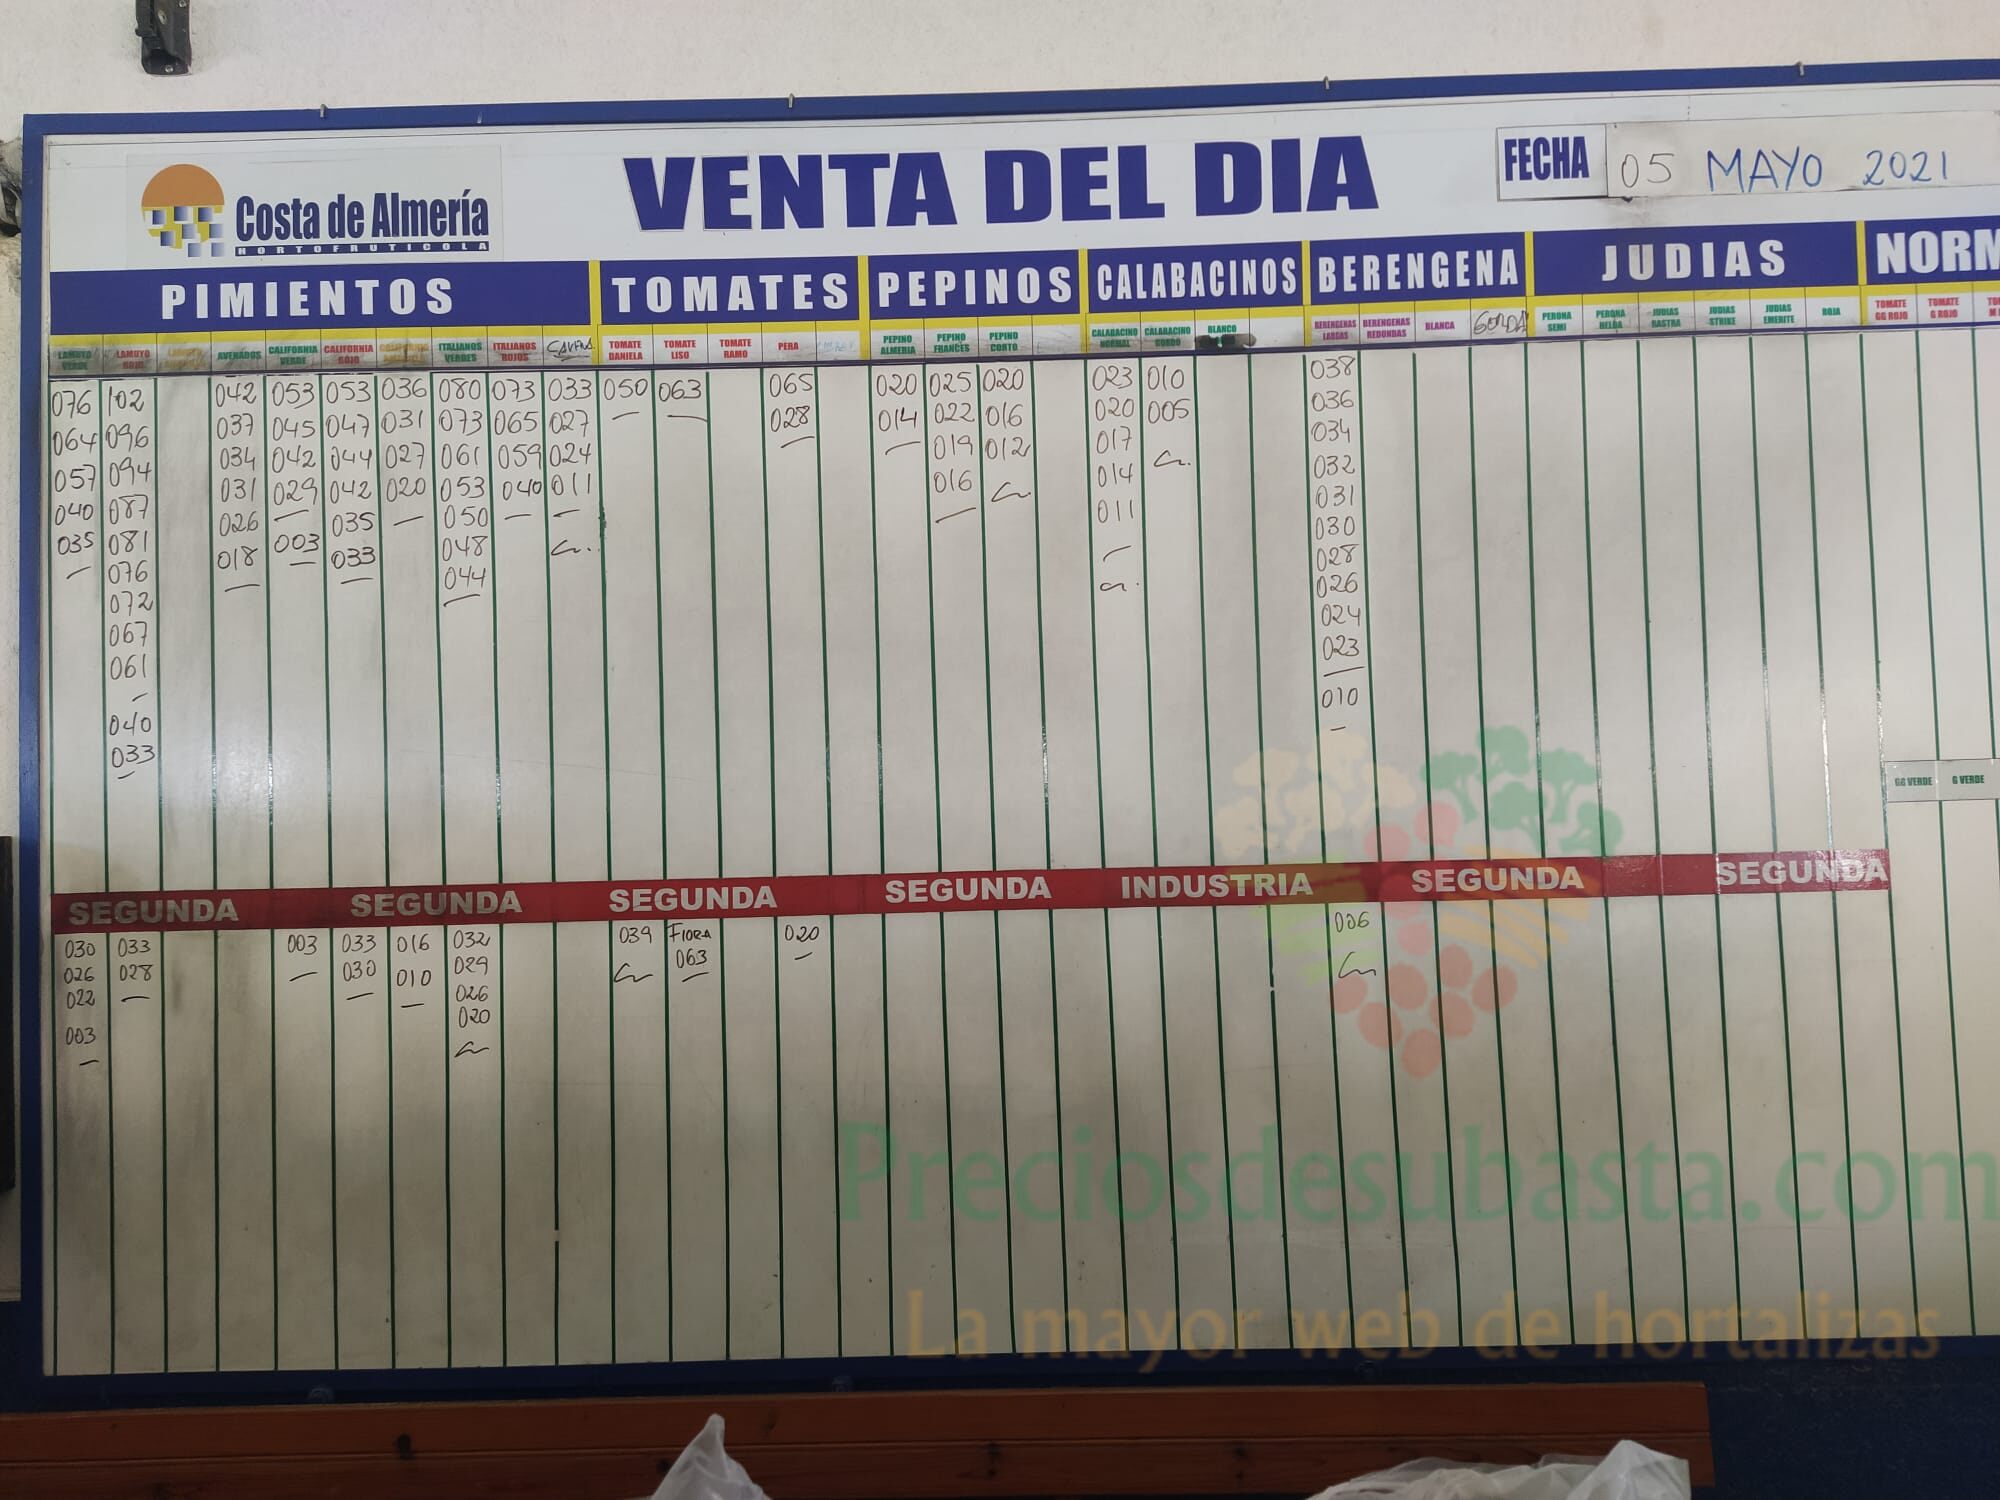 Costa de Almería
HORTOFRUTICOLA
VENTA DEL DIA
FECHA 05 MAYO 2021
PIMIENTOS TOMATES PEPINOS CALABACINOS BERENGENA JUDIAS NORM
LAMUYO VERDE
LAMUYO ROJO
AVENADOS
CALIFORNIA VERDE
CALIFORNIA ROJO
ITALIANOS VERDES
ITALIANOS ROJOS
TOMATE DANIELA
TOMATE LISO
TOMATE RAMO
PERA
PEPINO ALMERIA
PEPINO FRANCES
PEPINO CORTO
CALABACINO NORMAL
CALABACINO GORDO
BLANCO
BERENGENAS LARGAS
BERENGENAS REDONDAS
BLANCA
GORDA
PERONA SEMI
PERONA HELDA
JUDIAS RASTRA
JUDIAS STRIKE
JUDIAS EMERITE
ROJA
TOMATE GG ROJO
TOMATE G ROJO
076 102 042 053 053 036 080 073 033 050 063 065 020 025 020 023 010 038
064 096 037 045 047 031 073 065 027 028 014 022 016 020 005 036
057 094 034 042 044 027 061 059 024 019 012 017 034
040 087 031 029 042 020 053 040 011 016 014 032
035 081 026 003 035 050 011 031
076 018 033 048 030
072 044 028
067 026
061 024
040 023
033 010
GG VERDE G VERDE
SEGUNDA SEGUNDA SEGUNDA SEGUNDA INDUSTRIA SEGUNDA SEGUNDA
030 033 003 033 016 032 039 FIORA 020 006
026 028 030 010 029 063
022 026
003 020
Preciosdesubasta.com
La mayor web de hortalizas